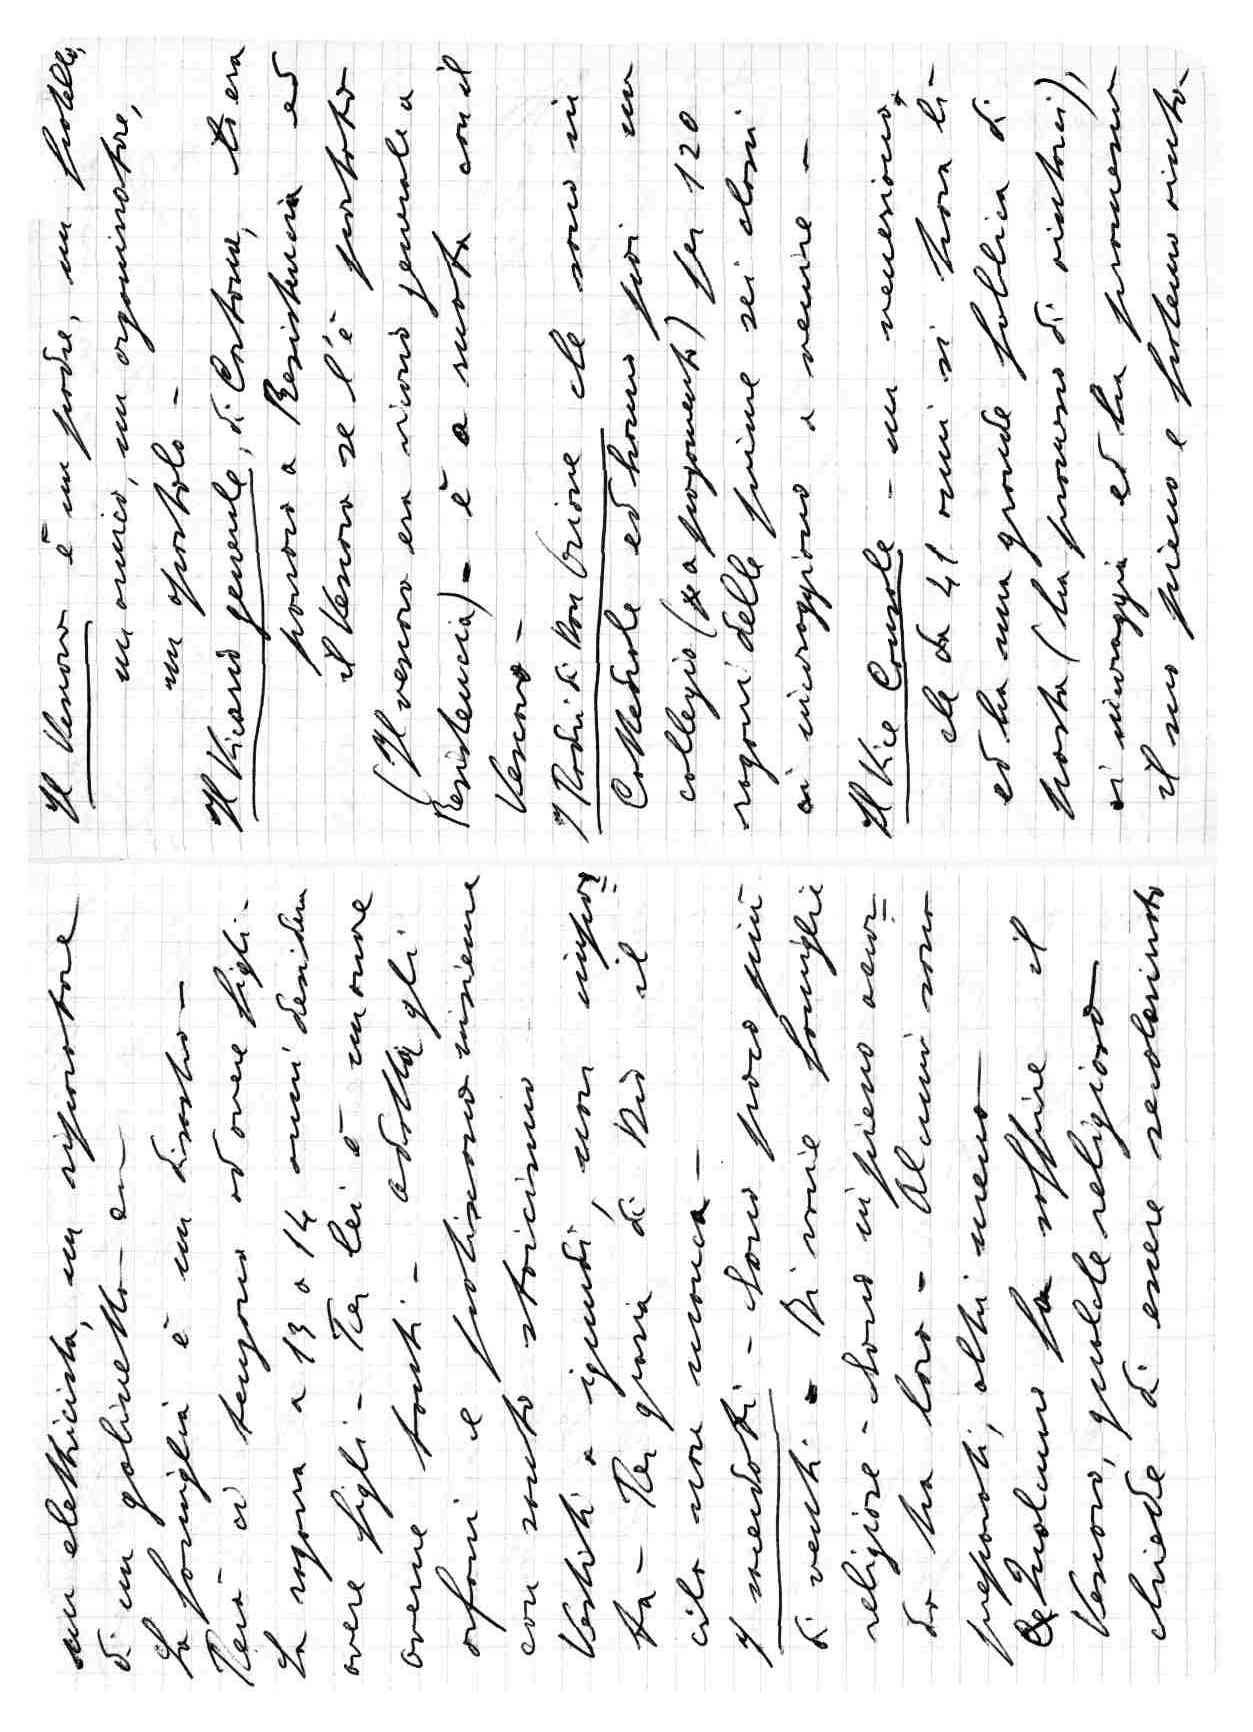 un elettricista, un riparatore
di un – ecc –
La famiglia è un disastro –
Però ci tengono ad avere figli –
La ragazza a 13 o 14 anni desidera
avere figli – Per lei è un onore
averne tanti – adotta gli
orfani e patiscono insieme
con santo stoicismo
Vestiti o ignudi, non impor=
ta – Per grazia di Dio il
cibo non manca –
I sacerdoti – Sono poco più
di venti – Di varie famiglie
religiose – Sono in pieno accor=
do tra loro – Alcuni sono
preparati, altri meno –
Qualcuno fa soffrire il
Vescovo, qualche religioso
chiede di essere secolarizzato
Il Vescovo è un padre, un fratello,
un amico, un organizzatore,
un apostolo –
Il Vicario generale, di Cortona, era
parroco a Resistencia ed
il Vescovo se l'è portato
(Il vescovo era vicario generale a
Resistencia) – è a ruota con il
Vescovo –
I Padri di Don Orione che sono in
Cattedrale ed hanno poi un
collegio (a pagamento) per 120
ragazzi delle prime sei classi
ci incoraggiano a venire –
Il Vice Console – un veneziano,
che da 41 anni si trova lì –
ed ha una grande fabbrica di
pasta (ha promesso di aiutarci),
ci incoraggia ed ha promesso
il suo pieno e fraterno aiuto –